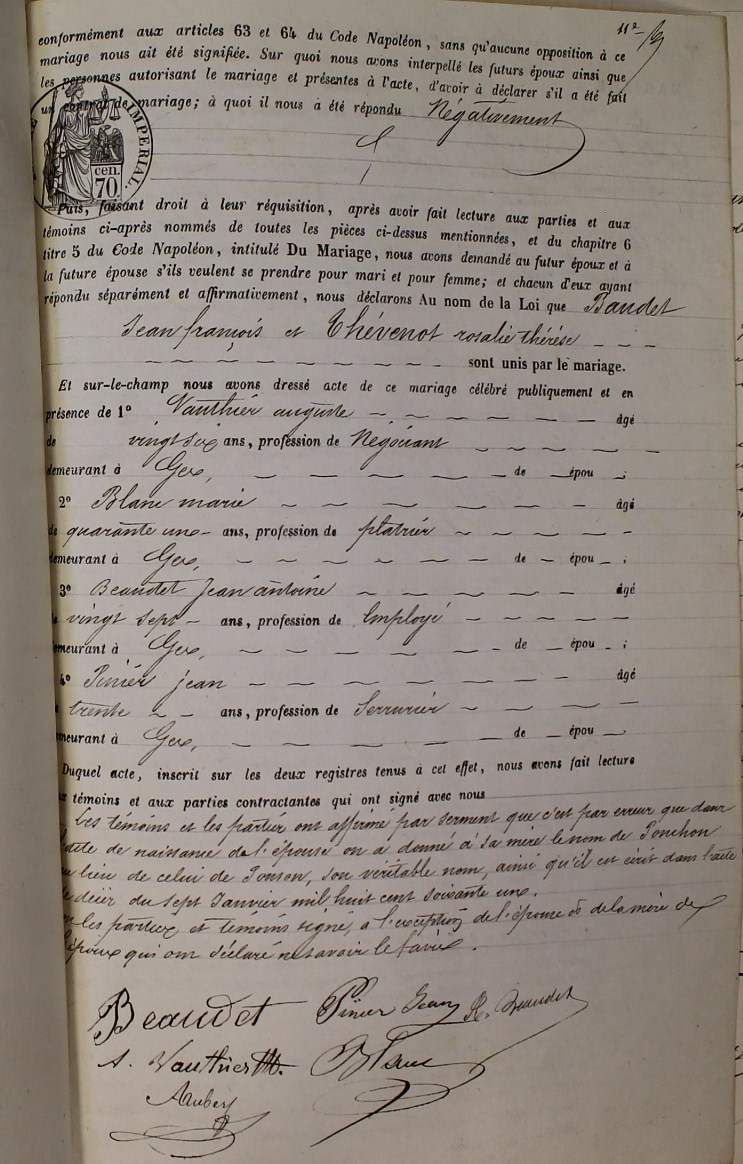 conformément aux articles 63 et 64 du Code Napoléon, sans qu'aucune opposition à ce
mariage nous ait été signifiée. Sur quoi nous avons interpellé les futurs époux ainsi que
les personnes autorisant le mariage et présentes à l'acte, d'avoir à déclarer s'il a été fait
un contrat de mariage; à quoi il nous a été répondu Négativement
IMPERIAL.
cen.
70.
Puis, faisant droit à leur réquisition, après avoir fait lecture aux parties et aux
témoins ci-après nommés de toutes les pièces ci-dessus mentionnées, et du chapitre 6
titre 5 du Code Napoléon, intitulé Du Mariage, nous avons demandé au futur époux et à
la future épouse s'ils veulent se prendre pour mari et pour femme; et chacun d'eux ayant
répondu séparément et affirmativement, nous déclarons Au nom de la Loi que Baudet
Jean françois et Thévenot rosalie thérèse
sont unis par le mariage.
Et sur-le-champ nous avons dressé acte de ce mariage célébré publiquement et en
présence de 1º Vauthier auguste âgé
de vingt six ans, profession de Négociant
demeurant à Gex, de épou ;
2º Blanc marie âgé
de quarante une ans, profession de platrier
demeurant à Gex, de épou ;
3º Beaudet Jean antoine âgé
vingt sept ans, profession de Employé
meurant à Gex, de épou ;
4º Pinier jean âgé
trente ans, profession de Serrurier
meurant à Gex, de épou
Duquel acte, inscrit sur les deux registres tenus à cet effet, nous avons fait lecture
témoins et aux parties contractantes qui ont signé avec nous
Les témoins et les partier ont affirmé par serment que c'est par erreur que dans
de naissance de l'épouse on a donné à sa mère le nom de Ponchon
lieu de celui de Ponson, son véritable nom, ainsi qu'il est écrit dans l'acte
décès du sept Janvier mil huit cent soixante une.
les parties et témoins signé, a l'exception de l'épouse et de la mère de
époux qui ont déclaré ne savoir le faire.
Beaudet Pinier Jean Beaudet
A. Vauthier Blanc